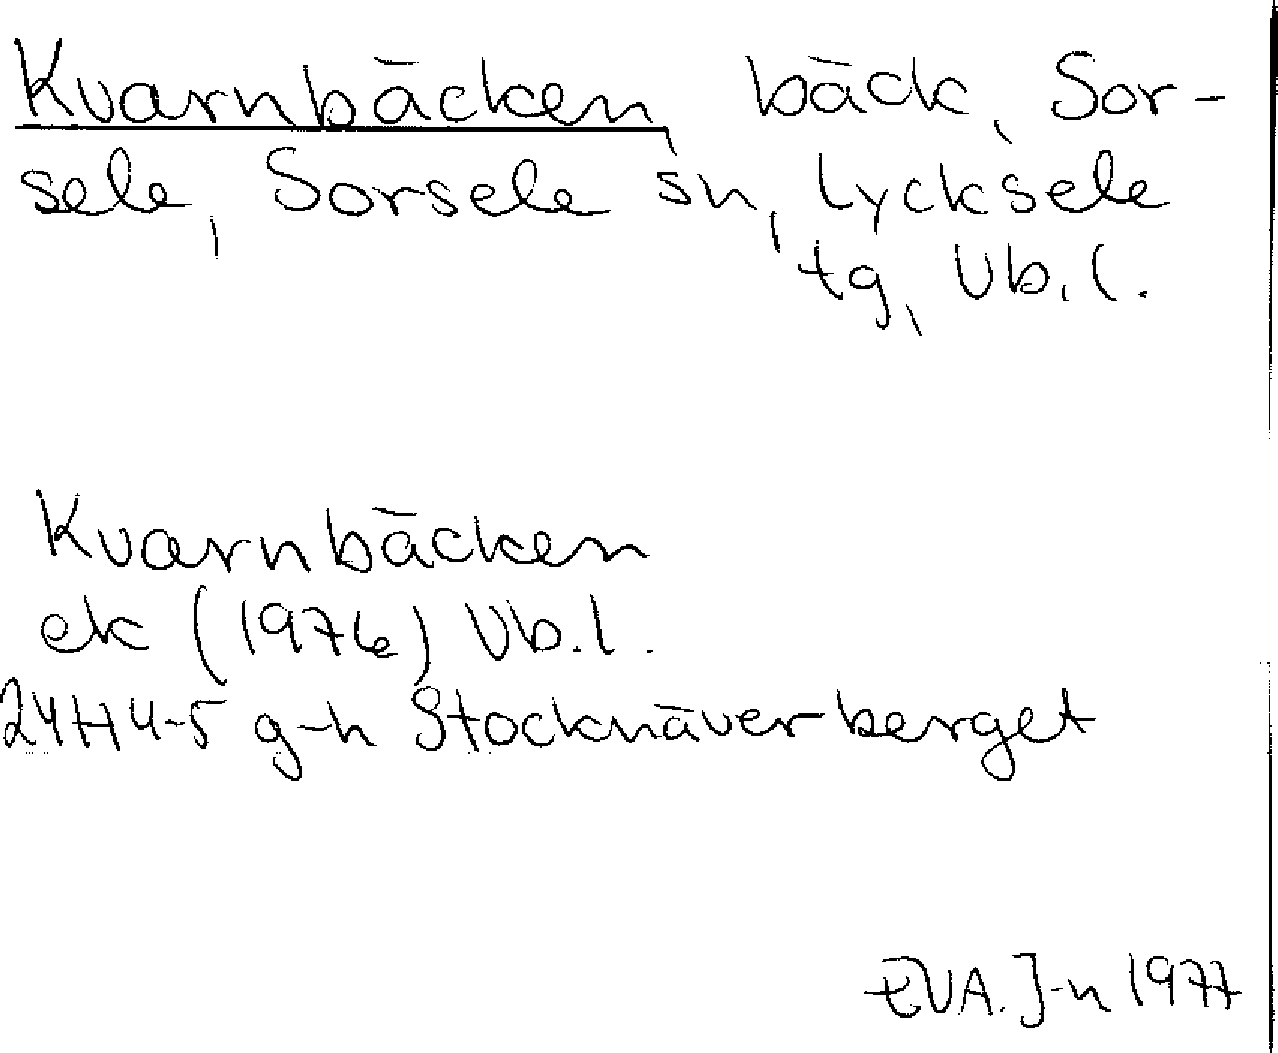 Kvarnbäcken, bäck, Sor-
sele, Sorsele sn, Lycksele
tg, Vb.l.
Kvarnbäcken
ek (1976) Vb.l.
24H4-5 g-h Stocknäverberget
EVA. J-n 1977